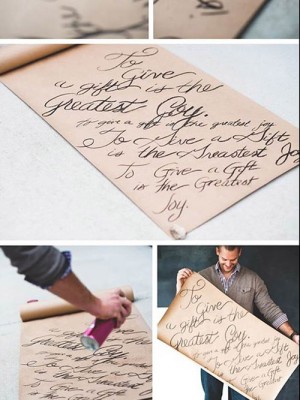 To
Give
a gift is the
greatest Joy.
To give a gift is the greatest joy
To Give a Gift
is the Greatest Joy
To Give a Gift
is the Greatest
Joy.
is the Greatest
To Give a Gift
To
Give
a gift is the
Greatest Joy.
To give a gift is the greatest joy
To Give a Gift
is the Greatest Joy
To Give a Gift
is the Greatest